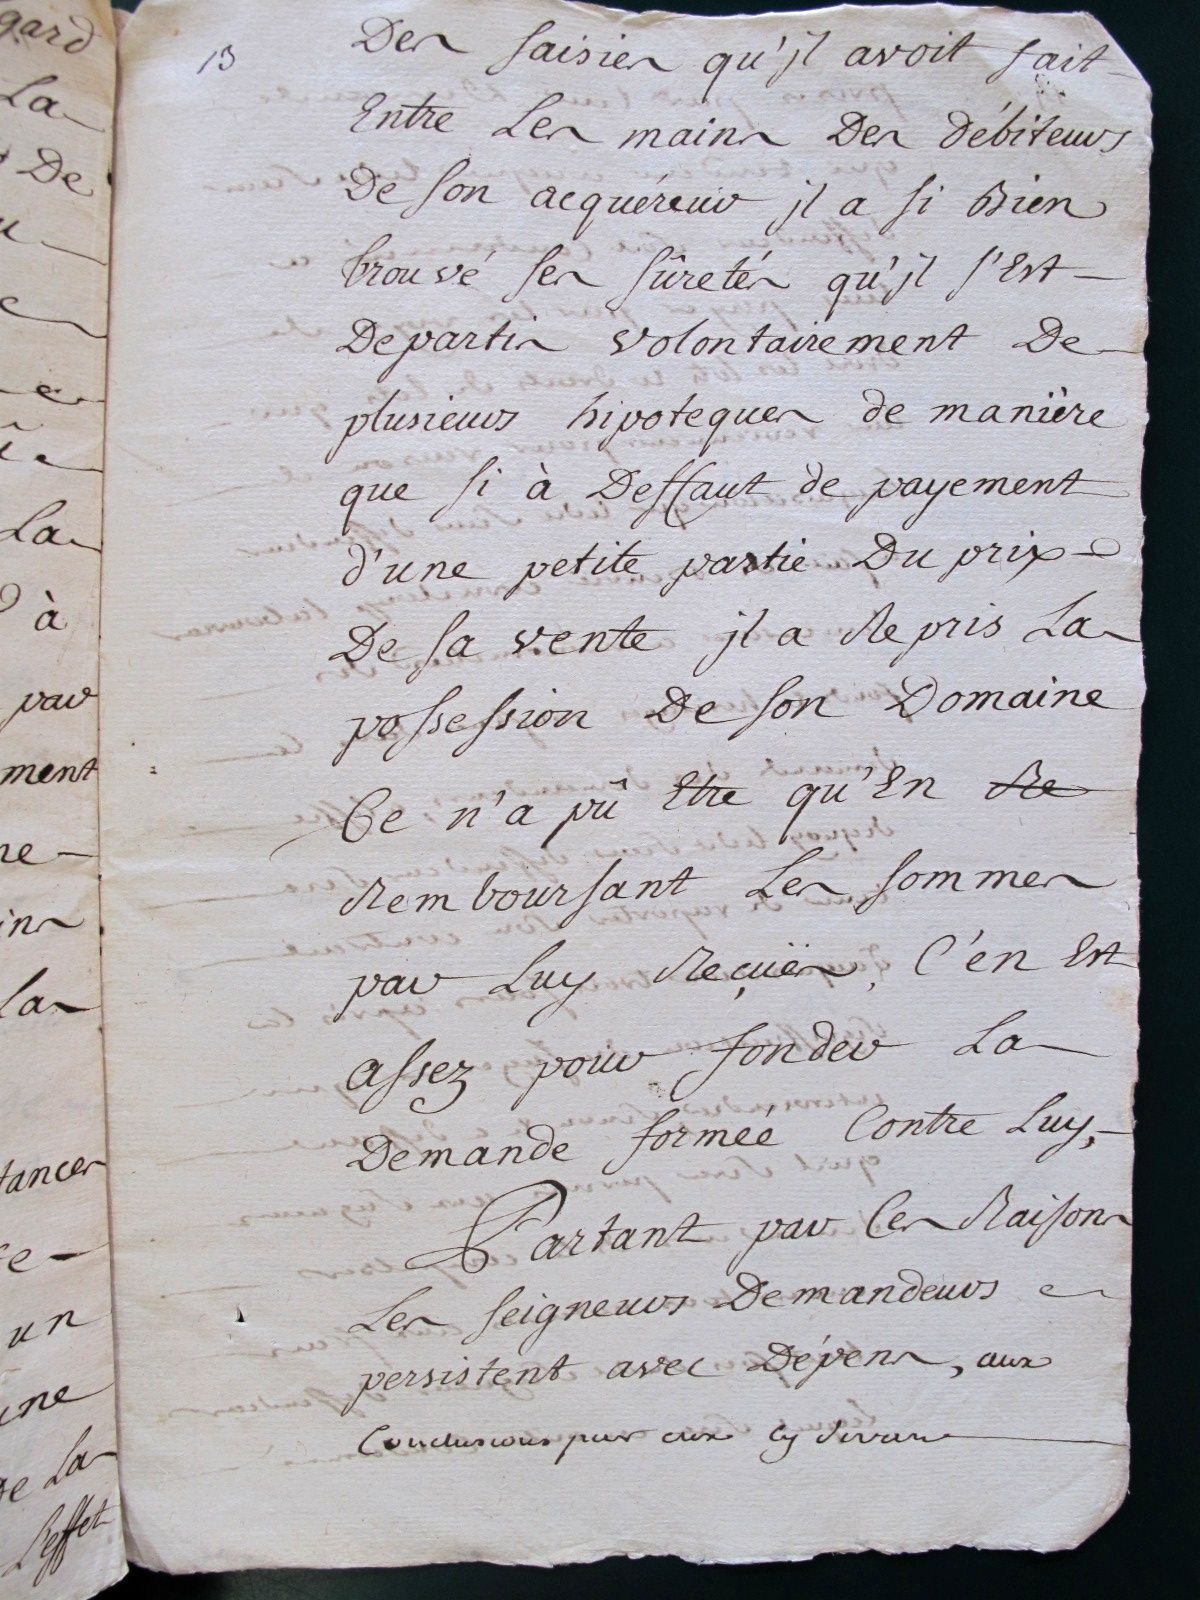 13
Des saisies qu'jl avoit fait
Entre Les mains Des débiteurs
De son acquéreur jl a si Bien
trouvé ses sûretés qu'jl s'Est
Departis volontairement De
plusieurs hipoteques de manière
que si à Deffaut de payement
d'une petite partie Du prix
De sa vente jl a Repris La
possession De son Domaine
Ce n'a pû Etre qu'En Re
Remboursant Les sommes
par Luy Reçües, C'en Est
assez pour fonder La
Demande forméé Contre Luy,
Partant par Ces Raisons
Les seigneurs Demandeurs
persistent avec Dépens, aux
Conclusions par eux cy devant
gard
La
De
La
à
par
ment
la
tances
un
De La
L'effet